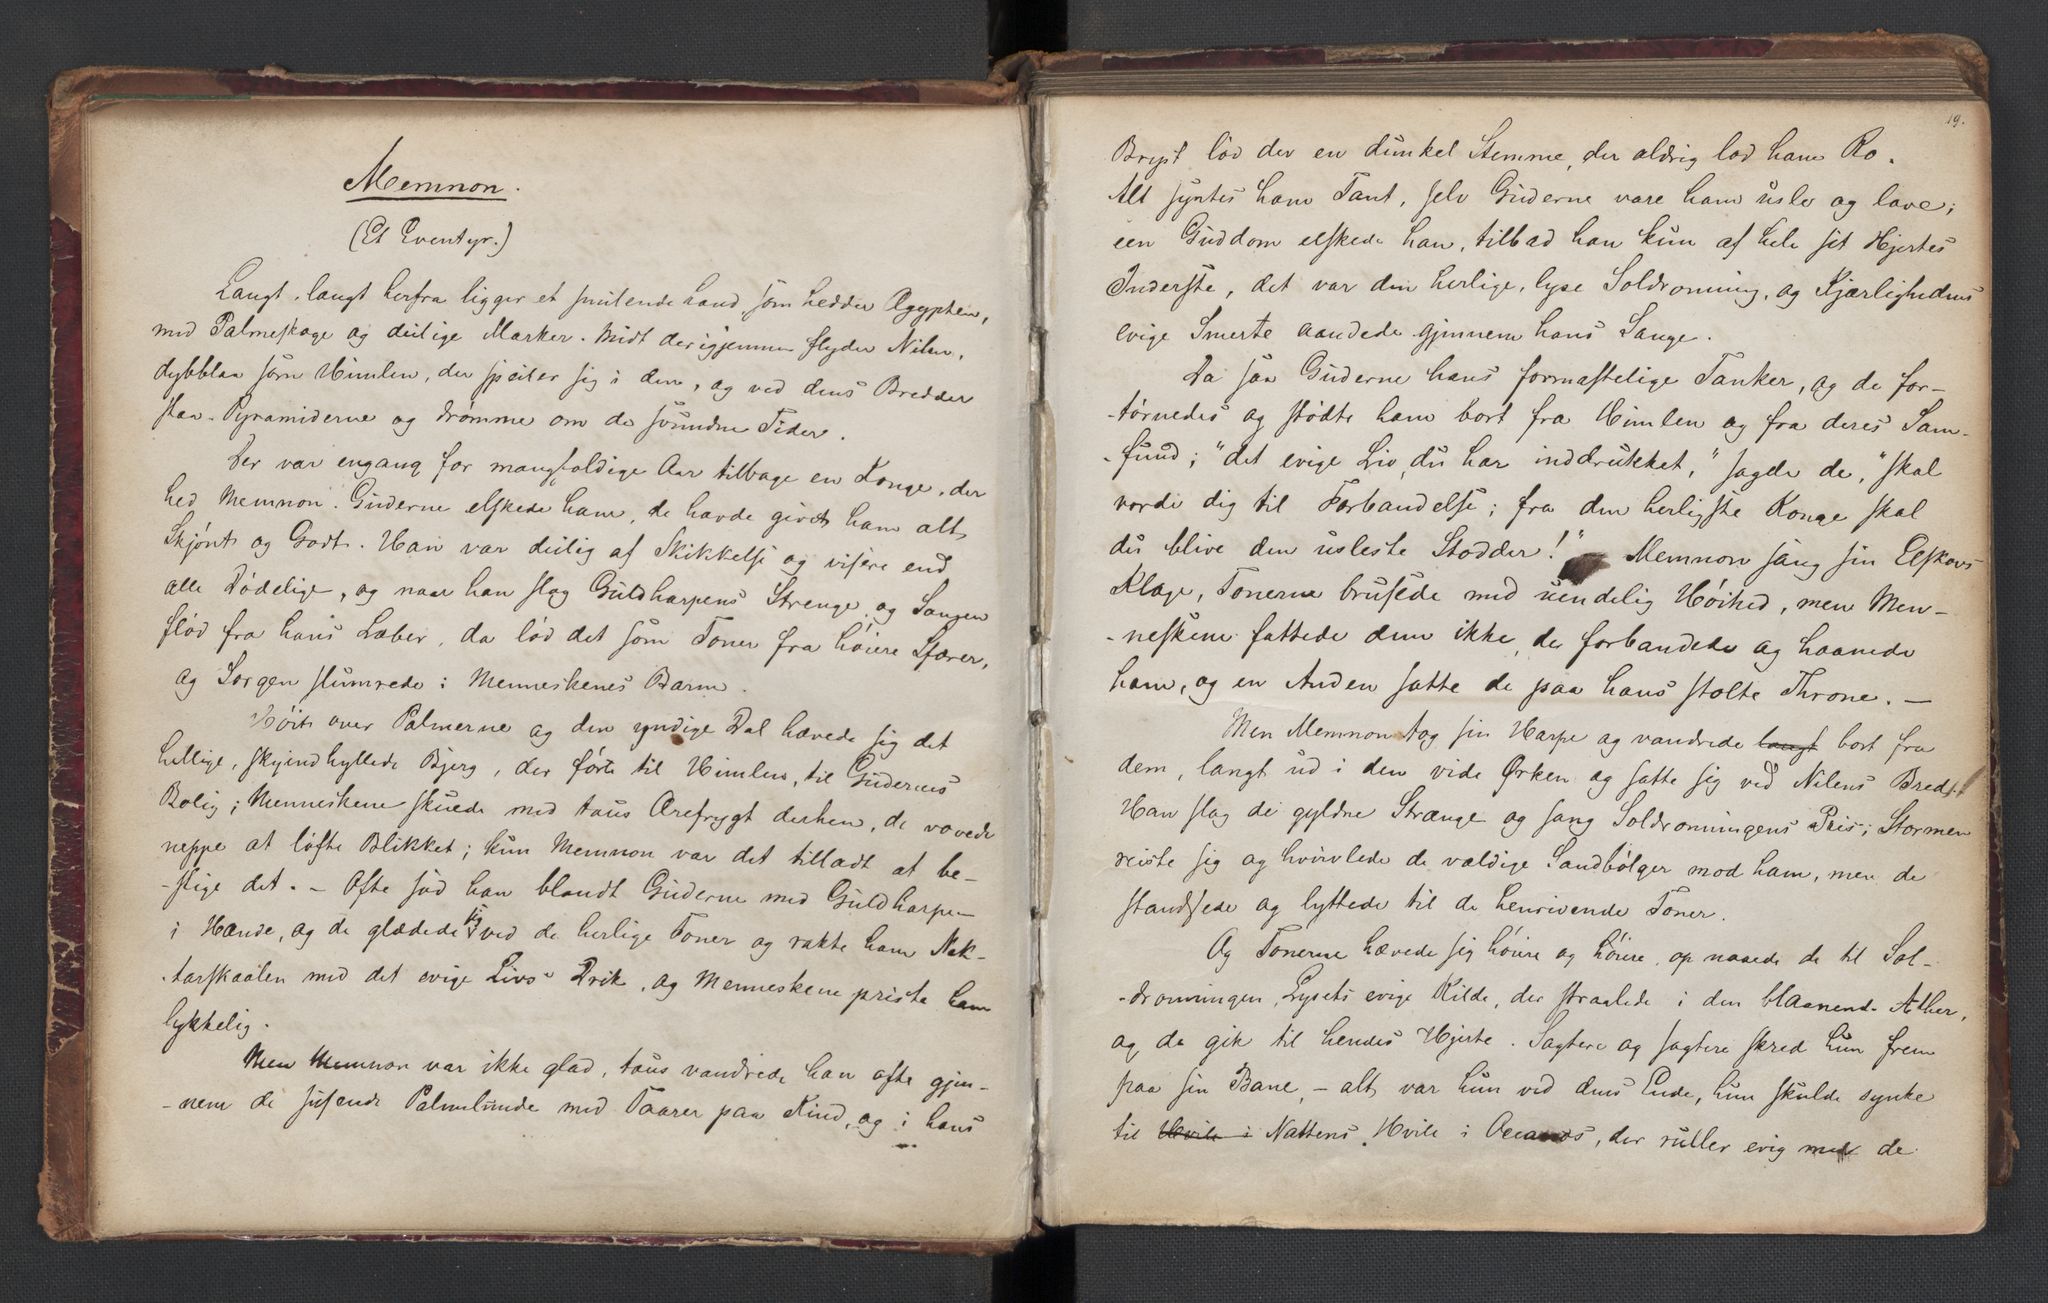 Memnon.
(Et Eventyr.)
Langt, langt herfra ligger et smilende Land som hedder Ægypten,
med Palmeskove og deilige Marker. Midt derigjennem flyder Nilen,
dybblaa som Himlen, der speiler sig i den, og ved dens Bredder
staa Pyramiderne og drømme om de svundne Tider.
Der var engang for mangfoldige Aar tilbage en Konge, der
hed Memnon. Guderne elskede ham, de havde givet ham alt
Skjønt og Godt. Han var deilig af Skikkelse og visere end
alle Dødelige, og naar han slog Guldharpens Strenge, og Sangen
flød fra hans Læber, da lød det som Toner fra høiere Sfærer,
og Sorgen slumrede i Menneskenes Barm.
Høit over Palmerne og den yndige Dal hævede sig det
hellige, skyindhyllede Bjerg, der førte til Himlen, til Gudernes
Bolig; Menneskene skuede med taus Ærefrygt derhen, de vovede
neppe at løfte Blikket; kun Memnon var det tilladt at be-
-stige det. – Ofte sad han blandt Guderne med Guldharpen
i Hænde, og de glædede sig ved de herlige Toner og rakte ham Nek-
-tarskaalen med det evige Livs Drik, og Menneskene priste ham
lykkelig.
Men Memnon var ikke glad, taus vandrede han ofte gjen-
-nem de susende Palmelunde med Taarer paa Kind, og i hans
19.
Bryst lød der en dunkel Stemme, der aldrig lod ham Ro.
Alt syntes ham Tant, selv Guderne vare ham usle og lave;
een Guddom elskede han, tilbad han kun af hele sit Hjertes
Inderste, det var den herlige, lyse Soldronning, og Kjærlighedens
evige Smerte aandede gjennem hans Sange.
Da saa Guderne hans formastelige Tanker, og de for-
-tørnedes og stødte ham bort fra Himlen og fra deres Sam-
-fund; "det evige Liv du har inddrukket," sagde de, "skal
vorde dig til Forbandelse; fra den herligste Konge skal
du blive den usleste Stodder!" Memnon sang sin Elskovs
Klage, Tonerne brusede med uendelig Høihed, men Men-
-neskene fattede dem ikke, de forbandede og haanede
ham, og en Anden satte de paa hans stolte Throne. —
Men Memnon tog sin Harpe og vandrede langt bort fra
dem, langt ud i den vide Ørken og satte sig ved Nilens Bred.
Han slog de gyldne Strænge og sang Soldronningens Pris; Stormen
reiste sig og hvirvlede de vældige Sandbølger mod ham, men de
standsede og lyttede til de henrivende Toner.
Og Tonerne hævede sig høiere og høiere, op naaede de til Sol-
-dronningen, Lysets evige Kilde, der straalede i den blaanende Æther,
og de gik til hendes Hjerte. Sagtere og sagtere skred hun frem
paa sin Bane, – alt var hun ved dens Ende, hun skulde synke
til Hvile i Nattens Hvile i Oceanos, der ruller evig med de